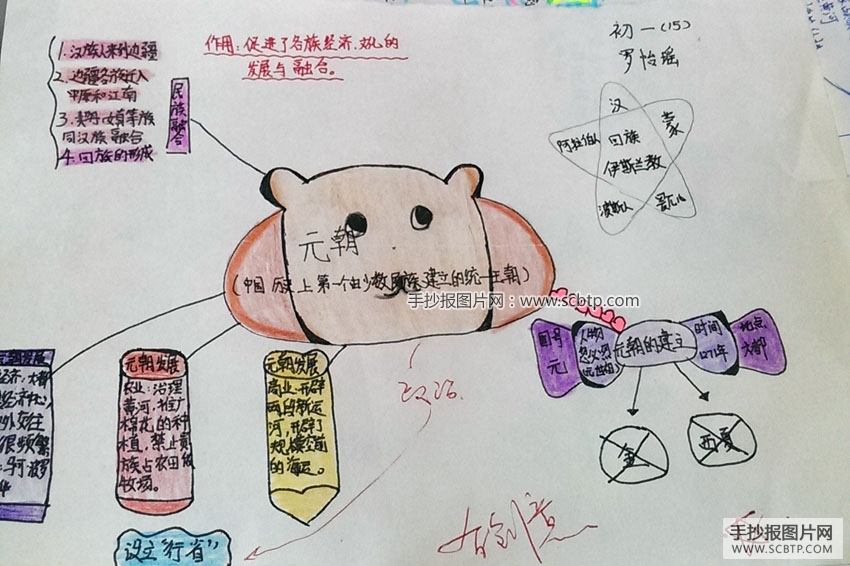 1. 汉族人来到边疆
2. 边疆各族迁入
中原和江南
3. 契丹、女真等族
同汉族融合
4. 回族的形成
民族融合
作用：促进了各族经济、文化的
发展与融合。
初一(15)
罗怡瑶
汉
蒙
阿拉伯人
回族
伊斯兰教
波斯人
畏兀儿
元朝
(中国历史上第一个由少数民族建立的统一王朝)
手抄报图片网：www.scbtp.com
国号
元
人物
忽必烈
元朝的建立
时间
1271年
地点
大都
金
西夏
元朝发展
经济：大都
外交往
很频繁
马可波罗
元朝发展
农业：治理
黄河，推广
棉花的种
植，禁止贵
族占农田做
牧场。
元朝发展
商业：开辟
两段新运
河，开辟了
规模空前
的海运。
政治
设立“行省”
有创意
手抄报图片网
WWW.SCBTP.COM